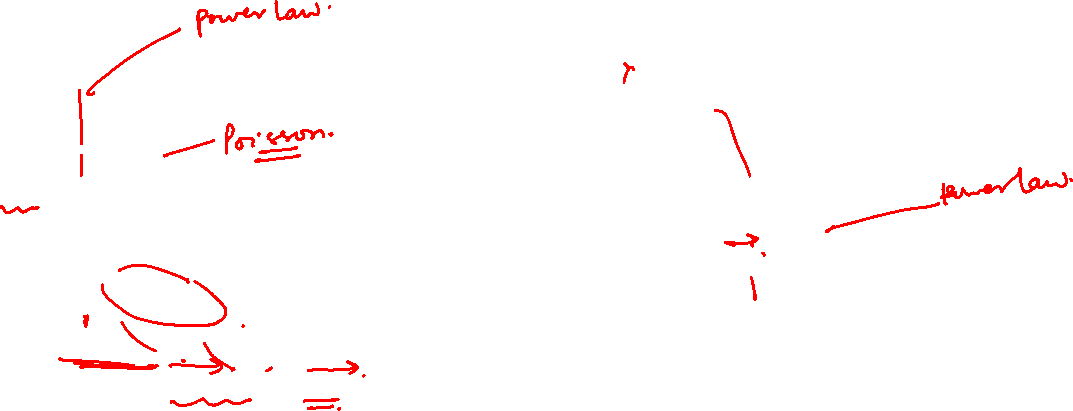 power law.
Poisson.
power law.